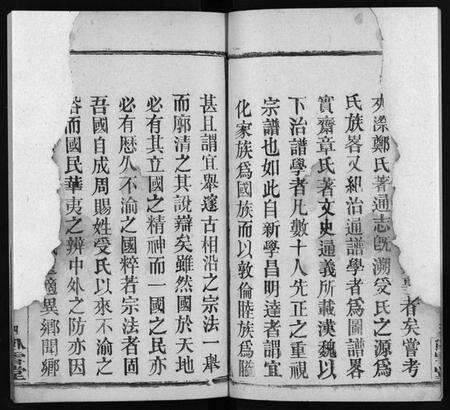 者矣嘗考
漈鄭氏著通志既溯受氏之源為
氏族畧又細治通譜學者為圖譜畧
實齋章氏著文史通義所載漢魏以
下治譜學者凡數十人先正之重視
宗譜也如此自新學昌明達者謂宜
化家族為國族而以敦倫睦族為
甚且謂宜舉邃古相沿之宗法一舉
而廓清之其說辯矣雖然國於天地
必有其立國之精神而一國之民亦
必有悠久不渝之國粹若宗法者固
吾國自成周賜姓受氏以來不渝之
而國民華夷之辨中外之防亦因
異鄉聞鄉